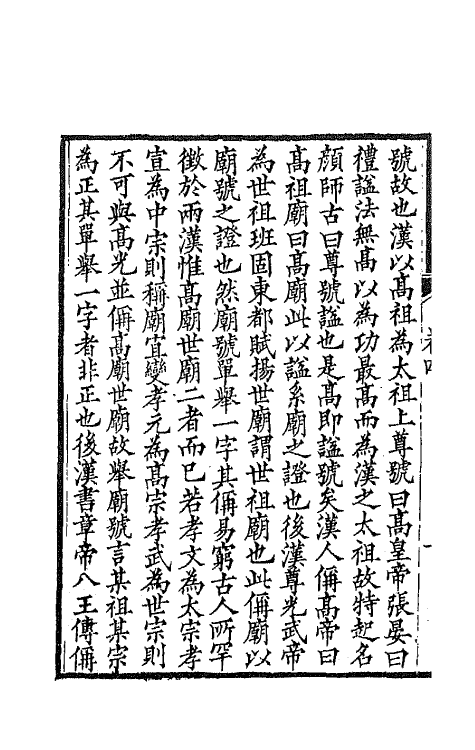 號故也漢以髙祖為太祖上尊號曰髙皇帝張晏曰
禮謚法無髙以為功最髙而為漢之太祖故特起名
顔師古曰尊號謚也是髙即謚號矣漢人偁髙帝曰
髙祖廟曰髙廟此以謚系廟之證也後漢尊光武帝
為世祖班固東都賦揚世廟謂世祖廟也此偁廟以
廟號之證也然廟號單舉一字其偁易窮古人所罕
徵於兩漢惟髙廟世廟二者而已若孝文為太宗孝
宣為中宗則稱廟宜變孝元為髙宗孝武為世宗則
不可與髙光並偁髙廟世廟故舉廟號言某祖某宗
為正其單舉一字者非正也後漢書章帝八王傳偁
卷四